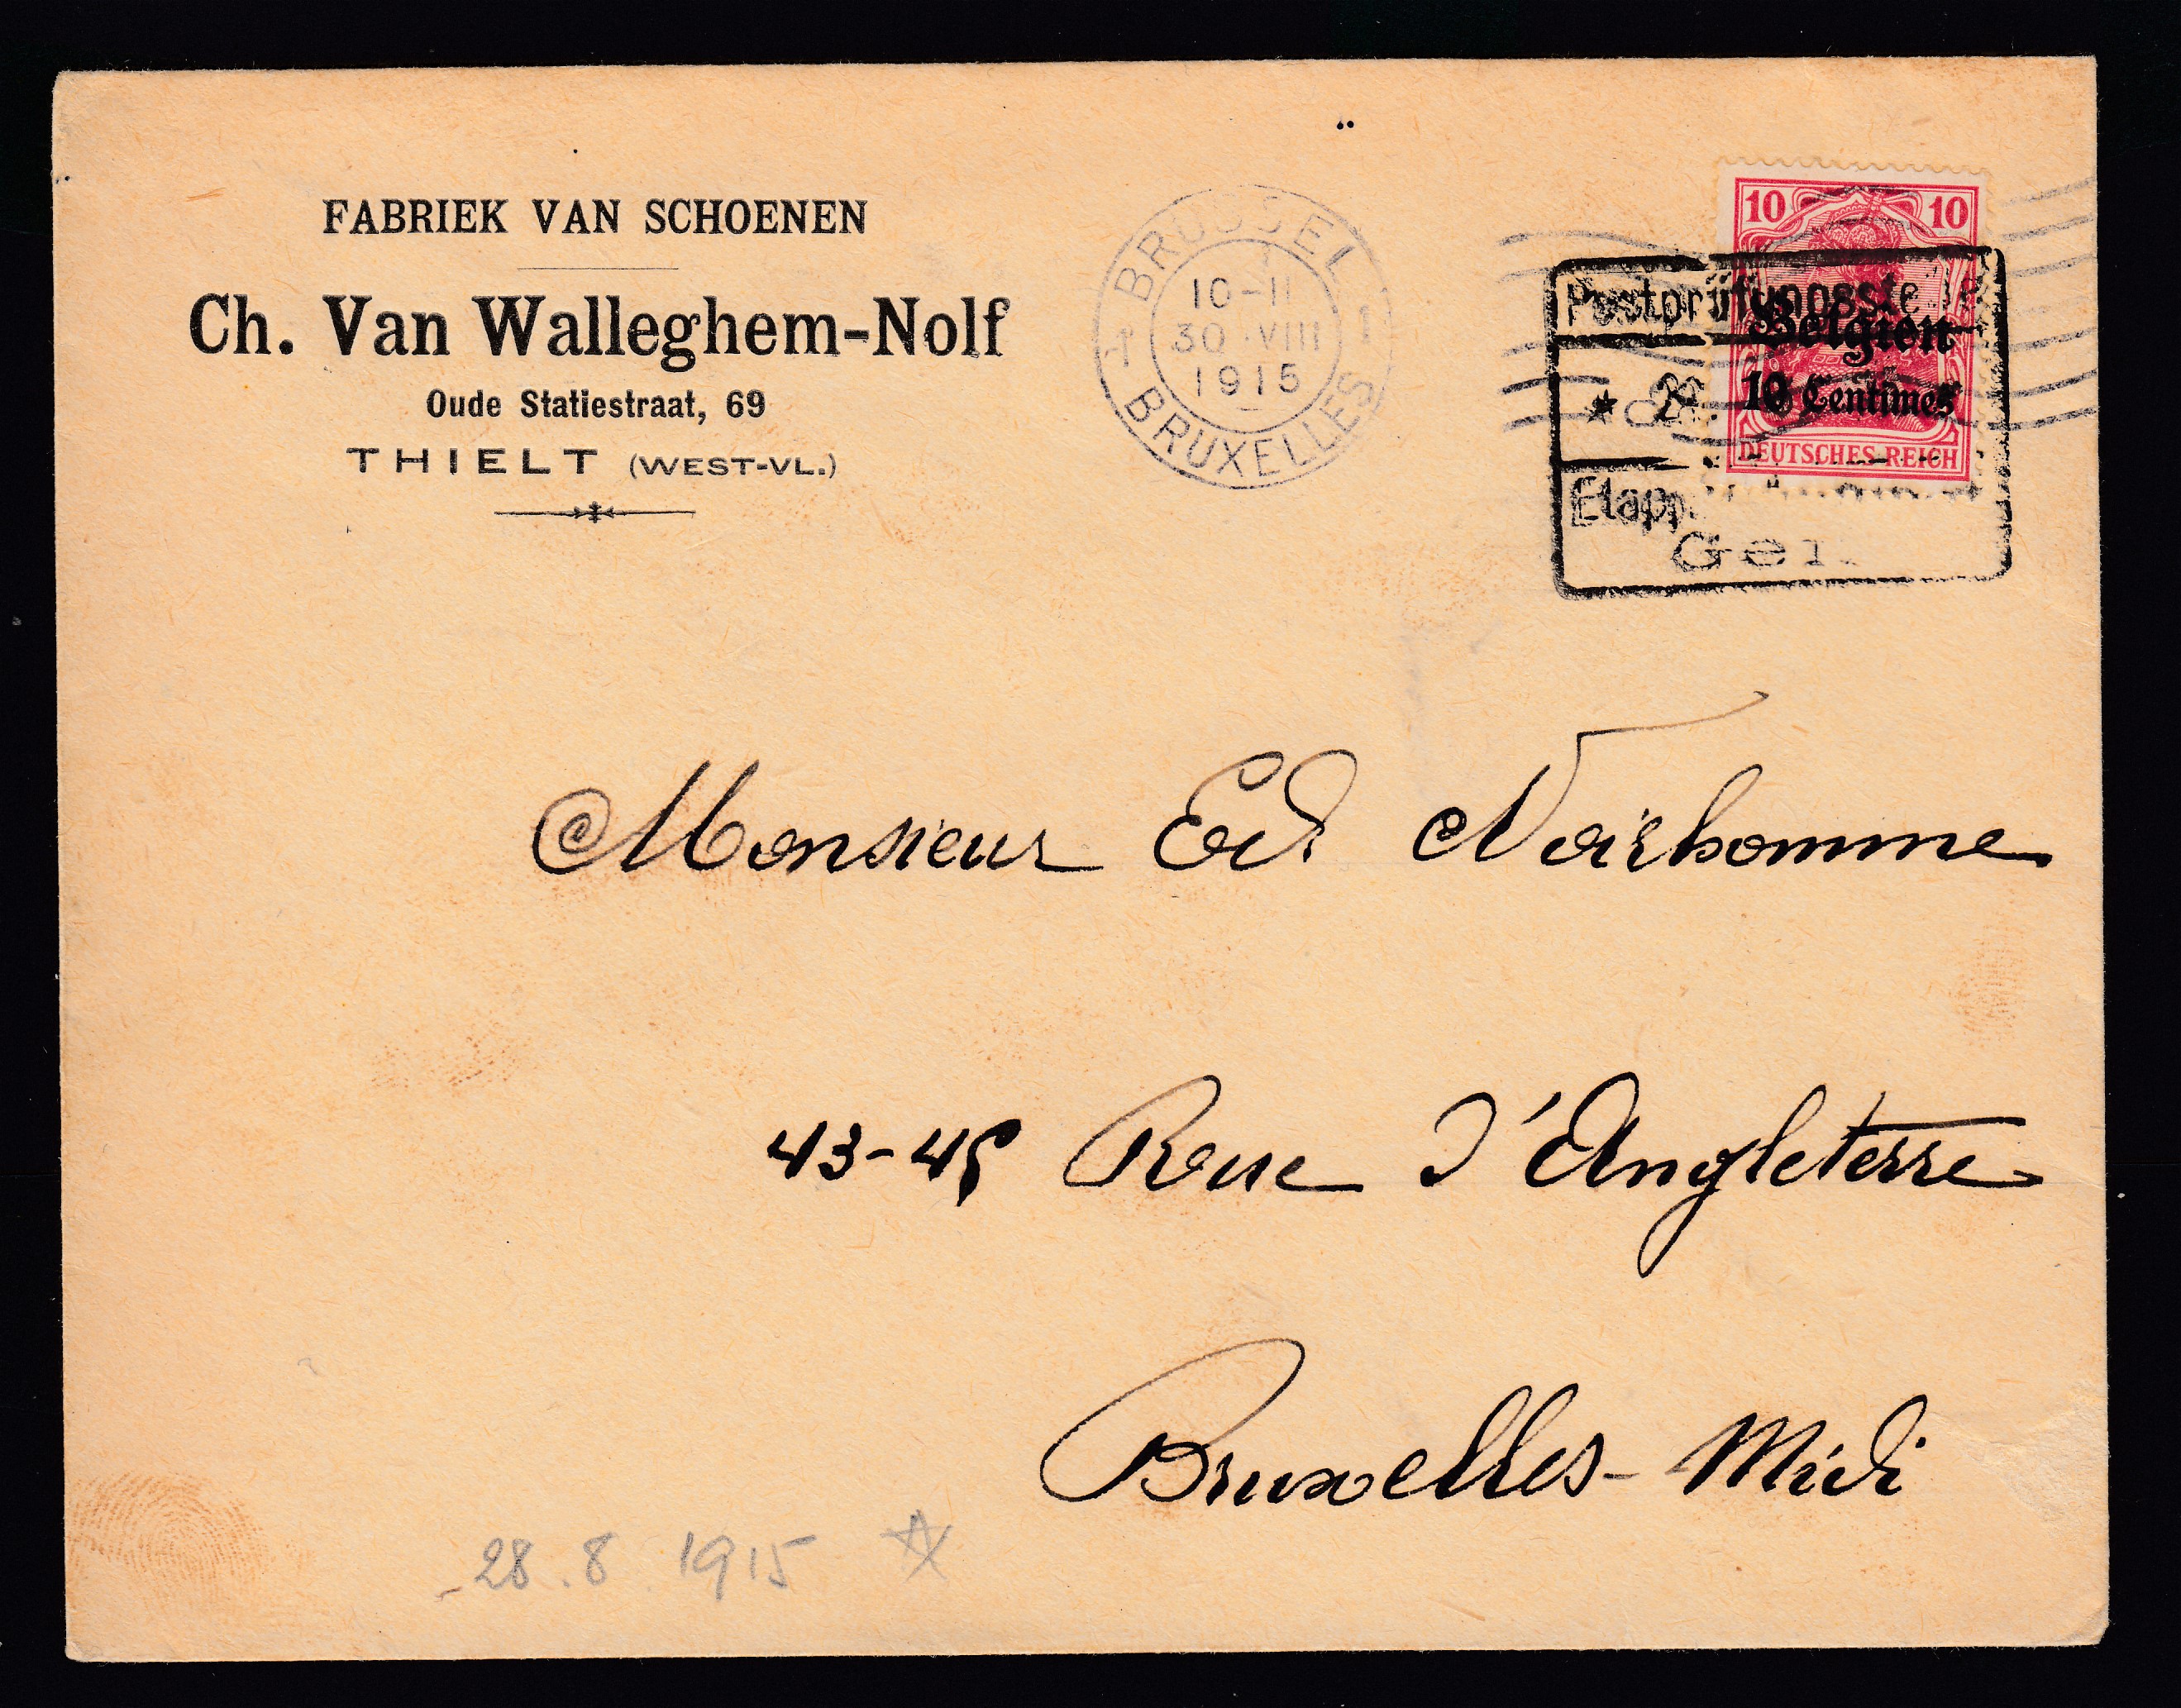 FABRIEK VAN SCHOENEN
Ch. Van Walleghem-Nolf
Oude Statiestraat, 69
THIELT (WEST-VL.)
BRUSSEL
10-11
30 VIII
1915
1 1
BRUXELLES
10 10
Belgien
10 Centimes
DEUTSCHES REICH
Monsieur Ed Noirhomme
43-45 Rue d'Angleterre
Bruxelles-Midi
28.8.1915